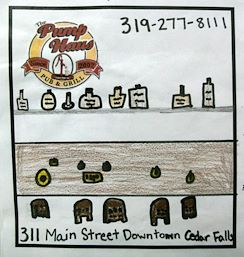 The
Pump
Haus
2002
PUB & GRILL
319-277-8111
311 Main Street Downtown Cedar Falls